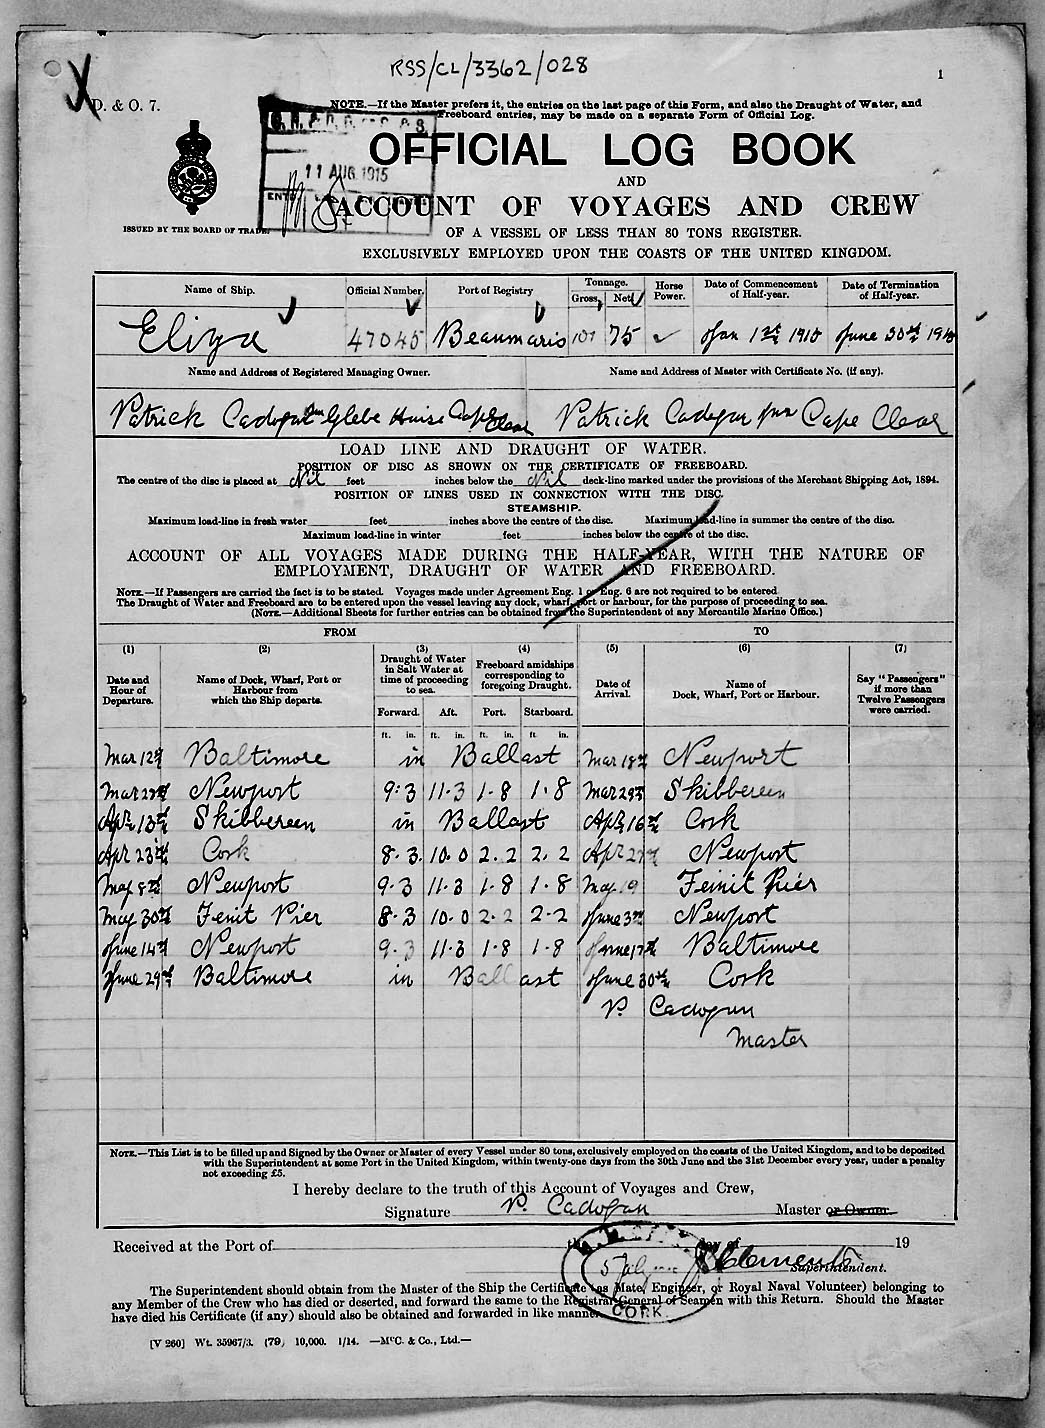 RSS/CL/3362/028
1
D. & O. 7.
NOTE.—If the Master prefers it, the entries on the last page of this Form, and also the Draught of Water, and
Freeboard entries, may be made on a separate Form of Official Log.
OFFICIAL LOG BOOK
11 AUG 1915
AND
ACCOUNT OF VOYAGES AND CREW
ISSUED BY THE BOARD OF TRADE.
OF A VESSEL OF LESS THAN 80 TONS REGISTER.
EXCLUSIVELY EMPLOYED UPON THE COASTS OF THE UNITED KINGDOM.
Name of Ship. Official Number. Port of Registry Tonnage. Gross. Nett Horse Power. Date of Commencement of Half-year. Date of Termination of Half-year.
Eliza 47045 Beaumaris 107 75 Jan 1st June 30th
Name and Address of Registered Managing Owner. Name and Address of Master with Certificate No. (if any).
Patrick Cadogan Jun Glebe House Cape Clear Patrick Cadogan Jun Cape Clear
LOAD LINE AND DRAUGHT OF WATER.
POSITION OF DISC AS SHOWN ON THE CERTIFICATE OF FREEBOARD.
The centre of the disc is placed at Nil feet inches below the Nil deck-line marked under the provisions of the Merchant Shipping Act, 1894.
POSITION OF LINES USED IN CONNECTION WITH THE DISC.
STEAMSHIP.
Maximum load-line in fresh water feet inches above the centre of the disc. Maximum load-line in summer the centre of the disc.
Maximum load-line in winter feet inches below the centre of the disc.
ACCOUNT OF ALL VOYAGES MADE DURING THE HALF-YEAR, WITH THE NATURE OF
EMPLOYMENT, DRAUGHT OF WATER AND FREEBOARD.
NOTE.—If Passengers are carried the fact is to be stated. Voyages made under Agreement Eng. 1 or Eng. 6 are not required to be entered
The Draught of Water and Freeboard are to be entered upon the vessel leaving any dock, wharf, port or harbour, for the purpose of proceeding to sea.
(NOTE.—Additional Sheets for further entries can be obtained from the Superintendent of any Mercantile Marine Office.)
FROM TO
(1) (2) (3) (4) (5) (6) (7)
Date and Hour of Departure. Name of Dock, Wharf, Port or Harbour from which the Ship departs. Draught of Water in Salt Water at time of proceeding to sea. Freeboard amidships corresponding to foregoing Draught. Date of Arrival. Name of Dock, Wharf, Port or Harbour. Say "Passengers" if more than Twelve Passengers were carried.
Forward. Aft. Port. Starboard.
ft. in. ft. in. ft. in. ft. in.
Mar 12th Baltimore in Ballast Mar 18th Newport
Mar Newport 9·3 11·3 1·8 1·8 Mar Skibbereen
Apr 13th Skibbereen in Ballast Apr 16th Cork
Apr 23rd Cork 8·3 10·0 2·2 2·2 Apr Newport
May 8th Newport 9·3 11·3 1·8 1·8 May 19 Feinit Pier
May 30th Fenit Pier 8·3 10·0 2·2 2·2 June 3rd Newport
June 14th Newport 9·3 11·3 1·8 1·8 June 17th Baltimore
June 29th Baltimore in Ballast June 30th Cork
P. Cadogan
Master
NOTE.—This List is to be filled up and Signed by the Owner or Master of every Vessel under 80 tons, exclusively employed on the coasts of the United Kingdom, and to be deposited
with the Superintendent at some Port in the United Kingdom, within twenty-one days from the 30th June and the 31st December every year, under a penalty
not exceeding £5.
I hereby declare to the truth of this Account of Voyages and Crew,
Signature P. Cadogan Master or Owner.
Received at the Port of the day of 19
Superintendent.
CORK
The Superintendent should obtain from the Master of the Ship the Certificate (as Mate, Engineer, or Royal Naval Volunteer) belonging to
any Member of the Crew who has died or deserted, and forward the same to the Registrar General of Seamen with this Return. Should the Master
have died his Certificate (if any) should also be obtained and forwarded in like manner.
[V 260] Wt. 35967/3. (79) 10,000. 1/14. —McC. & Co., Ltd.—